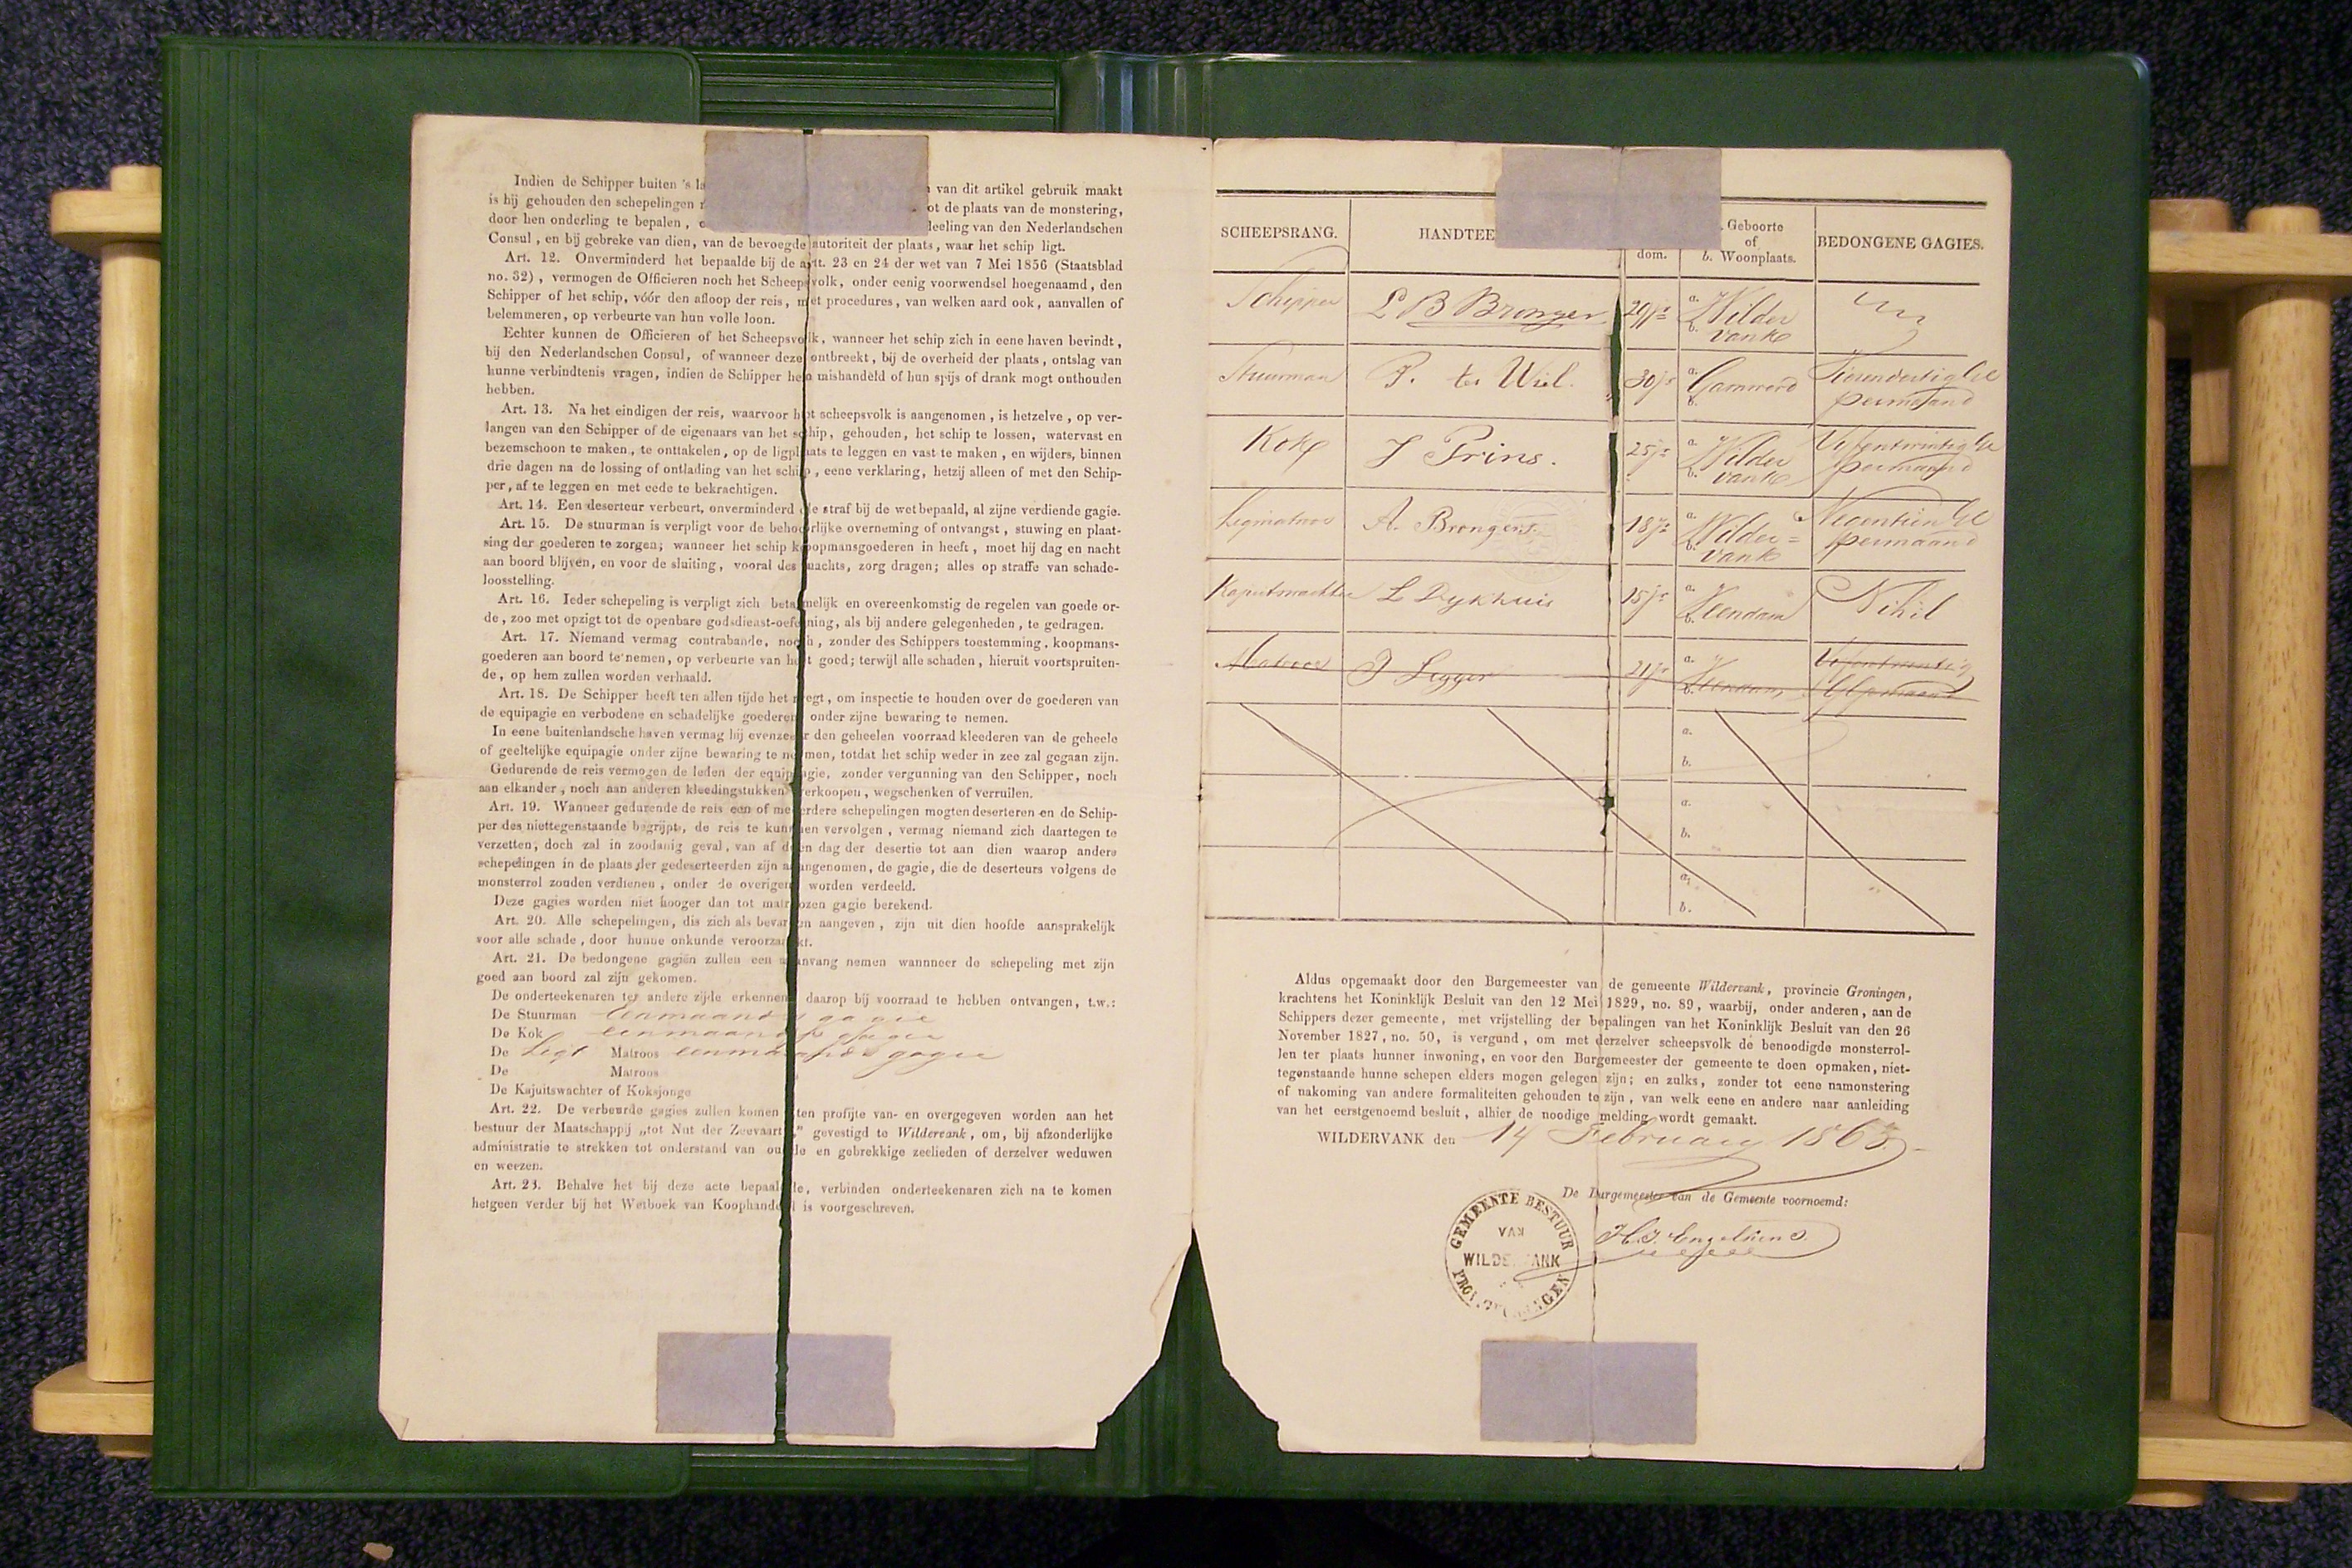 Indien de Schipper buiten 's
van dit artikel gebruik maakt
is hij gehouden den schepelingen
de plaats van de monstering,
door hen onderling te bepalen,
van den Nederlandschen
Consul, en bij gebreke van dien, van de bevoegde autoriteit der plaats, waar het schip ligt.
Art. 12. Onverminderd het bepaalde bij de artt. 23 en 24 der wet van 7 Mei 1856 (Staatsblad
no. 32), vermogen de Officieren noch het Scheepsvolk, onder eenig voorwendsel hoegenaamd, den
Schipper of het schip, vóór den afloop der reis, met procedures, van welken aard ook, aanvallen of
belemmeren, op verbeurte van hun volle loon.
Echter kunnen de Officieren of het Scheepsvolk, wanneer het schip zich in eene haven bevindt,
bij den Nederlandschen Consul, of wanneer deze ontbreekt, bij de overheid der plaats, ontslag van
hunne verbindtenis vragen, indien de Schipper hen mishandeld of hun spijs of drank mogt onthouden
hebben.
Art. 13. Na het eindigen der reis, waarvoor het scheepsvolk is aangenomen, is hetzelve, op ver-
langen van den Schipper of de eigenaars van het schip, gehouden, het schip te lossen, watervast en
bezemschoon te maken, te onttakelen, op de ligplaats te leggen en vast te maken, en wijders, binnen
drie dagen na de lossing of ontlading van het schip, eene verklaring, hetzij alleen of met den Schip-
per, af te leggen en met eede te bekrachtigen.
Art. 14. Een deserteur verbeurt, onverminderd de straf bij de wet bepaald, al zijne verdiende gagie.
Art. 15. De stuurman is verpligt voor de behoorlijke overneming of ontvangst, stuwing en plaat-
sing der goederen te zorgen; wanneer het schip koopmansgoederen in heeft, moet hij dag en nacht
aan boord blijven, en voor de sluiting, vooral des nachts, zorg dragen; alles op straffe van schade-
loosstelling.
Art. 16. Ieder schepeling is verpligt zich betamelijk en overeenkomstig de regelen van goede or-
de, zoo met opzigt tot de openbare godsdienst-oefening, als bij andere gelegenheden, te gedragen.
Art. 17. Niemand vermag contrabande, noch, zonder des Schippers toestemming, koopmans-
goederen aan boord te nemen, op verbeurte van het goed; terwijl alle schaden, hieruit voortspruiten-
de, op hem zullen worden verhaald.
Art. 18. De Schipper heeft ten allen tijde het regt, om inspectie te houden over de goederen van
de equipagie en verbodene en schadelijke goederen onder zijne bewaring te nemen.
In eene buitenlandsche haven vermag hij evenzeer den geheelen voorraad kleederen van de geheele
of geeltelijke equipagie onder zijne bewaring te nemen, totdat het schip weder in zee zal gegaan zijn.
Gedurende de reis vermogen de leden der equipagie, zonder vergunning van den Schipper, noch
aan elkander, noch aan anderen kleedingstukken verkoopen, wegschenken of verruilen.
Art. 19. Wanneer gedurende de reis een of meerdere schepelingen mogten deserteren en de Schip-
per des niettegenstaande begrijpt, de reis te kunnen vervolgen, vermag niemand zich daartegen te
verzetten, doch zal in zoodanig geval, van af den dag der desertie tot aan dien waarop andere
schepelingen in de plaats der gedeserteerden zijn aangenomen, de gagie, die de deserteurs volgens de
monsterrol zouden verdienen, onder de overigen worden verdeeld.
Deze gagies worden niet hooger dan tot matrozen gagie berekend.
Art. 20. Alle schepelingen, dis zich als bevaren aangeven, zijn uit dien hoofde aansprakelijk
voor alle schade, door hunne onkunde veroorzaakt.
Art. 21. De bedongene gagiën zullen een aanvang nemen wannneer de schepeling met zijn
goed aan boord zal zijn gekomen.
De onderteekenaren ter andere zijde erkennen daarop bij voorraad te hebben ontvangen, t.w.:
De Stuurman eenmaands gagie
De Kok eenmaands gagie
De Ligt Matroos eenmaands gagie
De Matroos
De Kajuitswachter of Koksjonge
Art. 22. De verbeurde gagies zullen komen ten profijte van- en overgegeven worden aan het
bestuur der Maatschappij „tot Nut der Zeevaart," gevestigd te Wildervank, om, bij afzonderlijke
administratie te strekken tot onderstand van oude en gebrekkige zeelieden of derzelver weduwen
en weezen.
Art. 23. Behalve het bij deze acte bepaalde, verbinden onderteekenaren zich na te komen
hetgeen verder bij het Wetboek van Koophandel is voorgeschreven.
SCHEEPSRANG. HANDTEE dom. Geboorte of b. Woonplaats. BEDONGENE GAGIES.
Schipper L B Bronger 29 jr a. b. Wildervank
Stuurman P. ter Wiel. 30 jr a. b. Garnwerd Vierendertig Gl permaand
Kok J Prins. 25 jr a. b. Wildervank Vijfentwintig Gl permaand
Ligmatroos A. Brongers. 18 jr a. b. Wilder=vank Negentien Gl permaand
Kajuitswachter L Dijkhuis 15 jr a. b. Veendam Nihil
Matroos J Legger 21 jr a. b. Veendam Vijfentwintig Gl pmaand
a.
b.
a.
b.
a.
b.
Aldus opgemaakt door den Burgemeester van de gemeente Wildervank, provincie Groningen,
krachtens het Koninklijk Besluit van den 12 Mei 1829, no. 89, waarbij, onder anderen, aan de
Schippers dezer gemeente, met vrijstelling der bepalingen van het Koninklijk Besluit van den 26
November 1827, no. 50, is vergund, om met derzelver scheepsvolk de benoodigde monsterrol-
len ter plaats hunner inwoning, en voor den Burgemeester der gemeente te doen opmaken, niet-
tegenstaande hunne schepen elders mogen gelegen zijn; en zulks, zonder tot eene namonstering
of nakoming van andere formaliteiten gehouden te zijn, van welk eene en andere naar aanleiding
van het eerstgenoemd besluit, alhier de noodige melding wordt gemaakt.
WILDERVANK den 14 February 1863.
De Burgemeester van de Gemeente voornoemd:
H.J. Engelkens
GEMEENTE BESTUUR
VAN
WILDERVANK
PROV. GRONINGEN